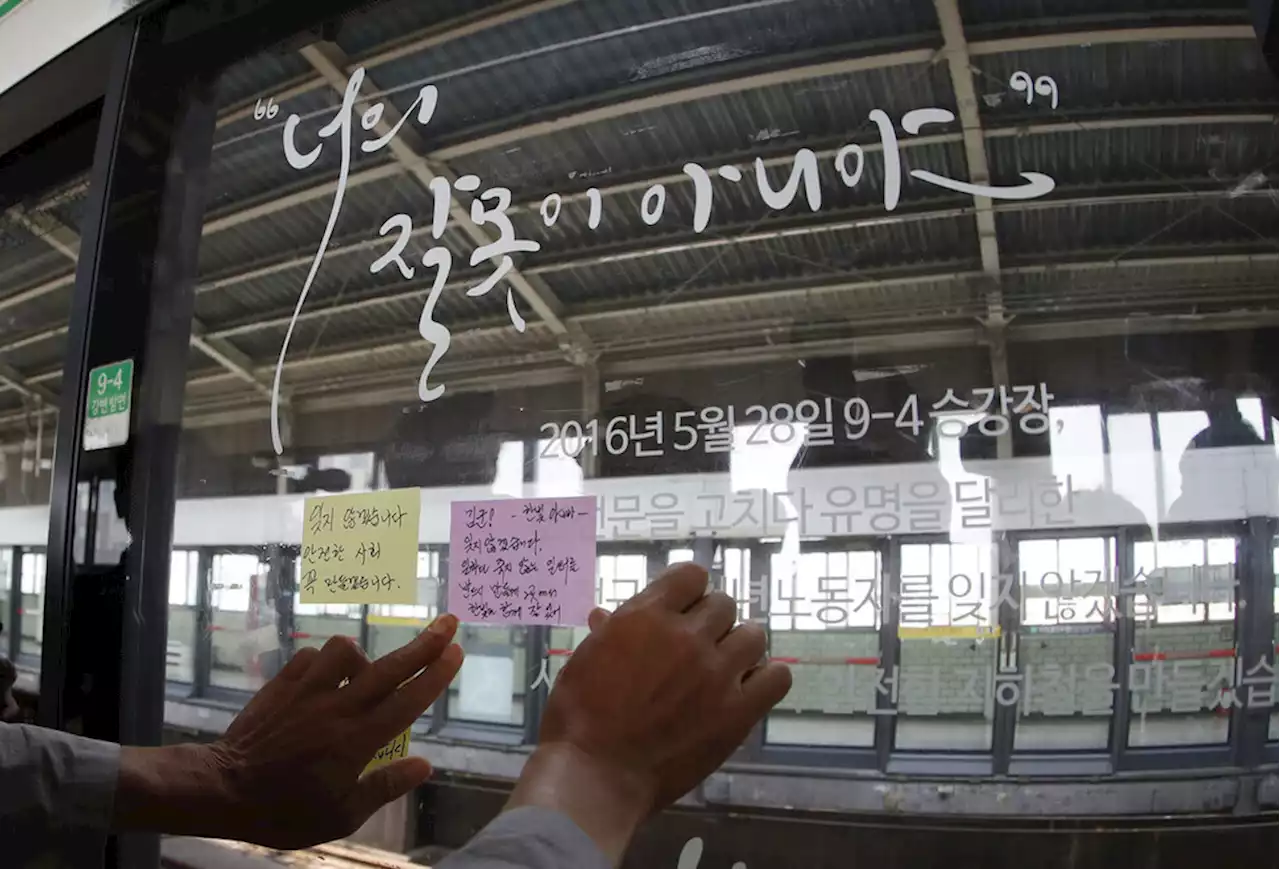 “너의
잘못이 아니야”
9-4
강변방면
2016년 5월 28일 9-4 승강장,
고치다 유명을 달리한
노동자를 잊지 않겠습니다.
안전한 지하철을 만들겠습
잊지 않겠습니다
안전한 사회
꼭 만들겠습니다.
김군! -한빛 아빠-
잊지 않겠습니다.
일하다 죽지 않는 일터를
한빛과 함께